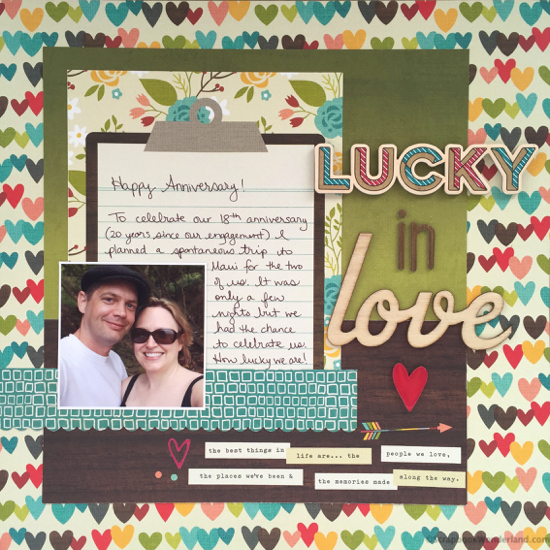 LUCKY
in
love
Happy Anniversary!
To celebrate our 18th anniversary
(20 years since our engagement) I
planned a spontaneous trip to
Maui for the two
of us. It was
only a few
nights but we
had the chance
to celebrate us.
How lucky we are!
the best things in
life are... the
people we love,
the places we've been &
the memories made
along the way.
ScrapbookWonderland.com